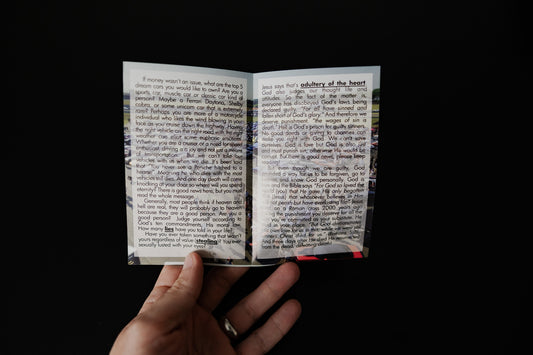 If money wasn't an issue, what are the top 5
dream cars you would like to own? Are you a
sports car, muscle car or classic car kind of
person? Maybe a Ferrari Daytona, Shelby
cobra, or some unicorn car that is extremely
rare? Perhaps you are more of a motorcycle
individual who likes the wind blowing in your
face as you move down the highway. Having
the right vehicle on the right road with the right
scenery can elicit some euphoric emotions.
Whether you are a cruiser or a road torquer
the point of driving is joy and not just a means
of transportation. But we can't take our
vehicles with us when we die. It's been said
that "You never see a U-Haul hitched to a
hearse". Meaning he who dies with the most
vehicles still dies. And one day death will come
knocking at your door so where will you spend
eternity? There is good news here, but you must
read the whole message
Generally, most people think if heaven and
hell are real, they will probably go to heaven
because they are a good person. Are you a
good person? Judge yourself according to
God's ten commandments, His moral law.
How many lies have you told in your life?
Have you ever taken something that wasn't
yours regardless of value (stealing)? If you ever
sexually lusted with your eyes,
Jesus says that's adultery of the heart.
God also judges our thought life and
attitudes. So the fact of the matter is,
everyone has disobeyed God's laws, being
declared guilty. "For all have sinned and
fallen short of God's glory." And therefore we
deserve punishment, "the wages of sin is
death." Hell is God's prison for guilty sinners.
No good deeds or giving to charities can
make you right with God. We can't save
ourselves. God is love but God is also just
and must punish sin, otherwise He would be
corrupt. But there is good news, please keep
reading.
But even though we are guilty, God
provided a way for us to be forgiven, go to
heaven and know God personally. God is
love and the Bible says "For God so loved the
world (you) that He gave His only begotten
Son (Jesus), that whosoever believes in Him
shall not perish but have everlasting life." Jesus
died on a Roman cross 2000 years ago
taking the punishment you deserve for all the
sins you've committed as your substitute. He
died in your place. "But God demonstrates
His own love for us in this: while we were still
sinners, Christ died for us."
And three days later He
from the dead, defeating death!